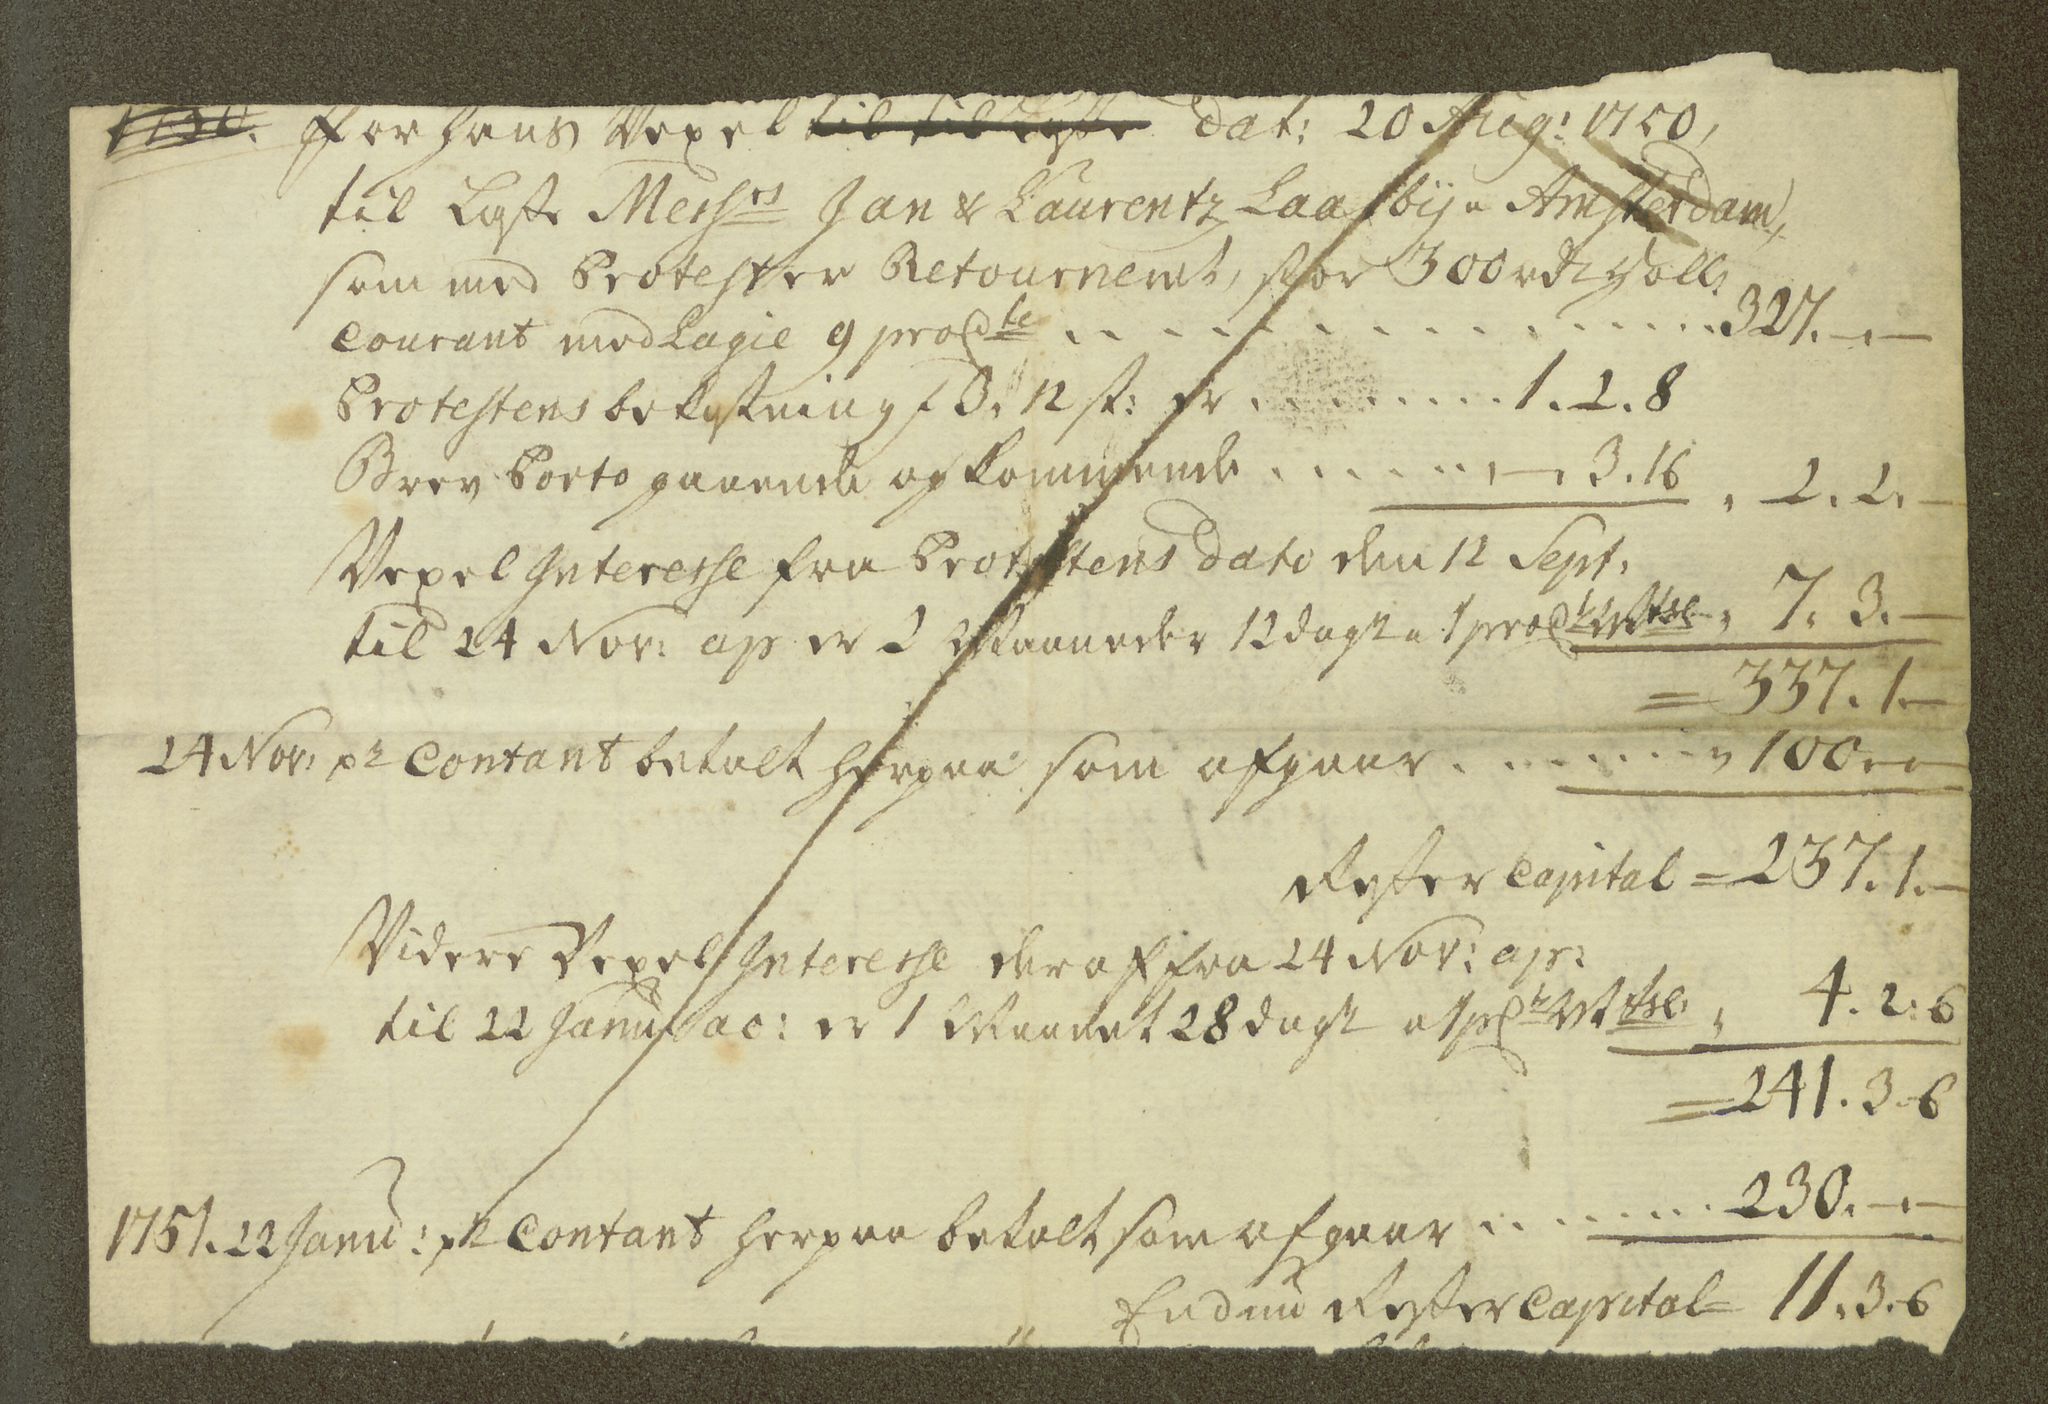 1750. For hans Vexel til til Laste dat: 20 Aug: 1750,
til Laste Messrs Jan & Laurentz Laasbÿe Amsterdam,
som med Protest er Retourneret, stor 300 rdr Holl:
Courant med Lagie 9 proCto ........ 327.—.—
Protestens bekostning f 3. 12 st: er ........ 1.2.8
Brev Porto gaaende og kommende ........ —. 3.16 , 2.2.—
Vexel Interesse fra Protestens dato den 12 Sept:
til 24 Nov: ap er 2 Maaneder 12 dage a 1 proCto , 7.3.—
= 337.1.—
24 Nov: pr Contant betalt herpaa som afgaar ........ , 100.—.—
Rester Capital = 237.1.—
Videre Vexel Interesse deraf fra 24 Nov: ap:
til 22 Janu ac: er 1 Maanet 28 dage a 1 pCto , 4.2.6
= 241.3.6
1751. 22 Janu: pr Contant herpaa betalt som afgaar ........ 230.—.—
Endnu Rester Capital = 11.3.6